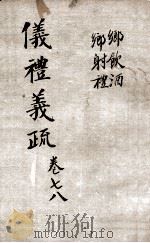 鄉飲酒
鄉射禮
儀禮義疏 卷七八